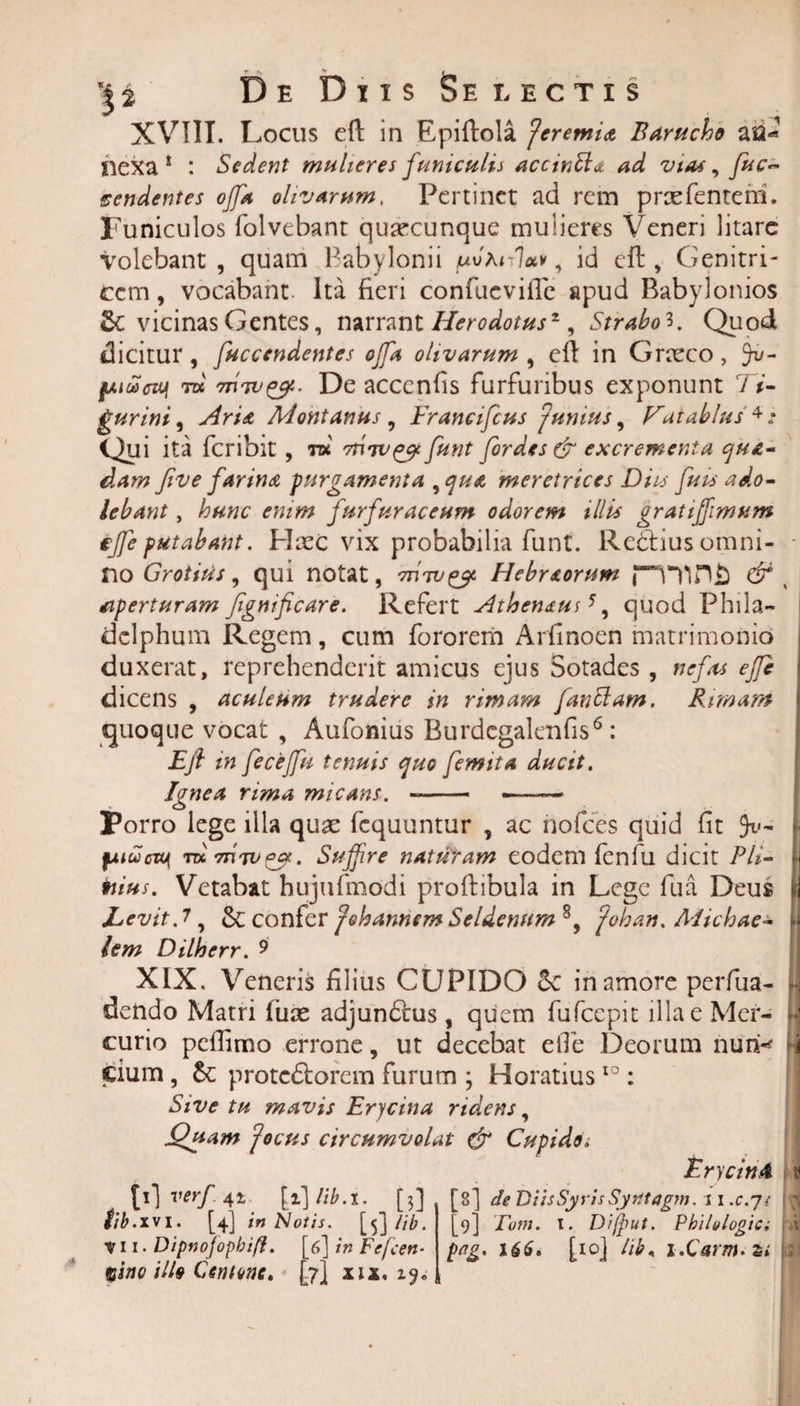 32 De Diis Selectis
XVIII. Locus eſt in Epiſtolâ Jeremiæ Barucho an-
nexa¹ : Sedent mulieres funiculis accinctæ ad vias, ſuc-
cendentes oſſa olivarum. Pertinet ad rem præſentem.
Funiculos ſolvebant quæcunque mulieres Veneri litare
volebant , quam Babylonii μύλιτ]αν, id eſt , Genitri-
cem, vocabant. Ità fieri conſueviſſe apud Babylonios
& vicinas Gentes, narrant Herodotus², Strabo³. Quod
dicitur, ſuccendentes oſſa olivarum , eſt in Græco, θυ-
μιῶσαι τὰ πίτυρα. De accenſis furfuribus exponunt Ti-
gurini, Ariæ Montanus, Franciſcus Junius, Vatablus⁴:
Qui ità ſcribit, τὰ πίτυρα ſunt ſordes & excrementa quæ-
dam ſive farinæ purgamenta , quæ meretrices Diis ſuis ado-
lebant, hunc enim furfuraceum odorem illis gratiſſimum
eſſe putabant. Hæc vix probabilia ſunt. Rectius omni-
no Grotius, qui notat, πίτυρα Hebræorum פתחות &
aperturam ſignificare. Refert Athenæus⁵, quod Phila-
delphum Regem, cum ſororem Arſinoen matrimonio
duxerat, reprehenderit amicus ejus Sotades , nefas eſſe
dicens , aculeum trudere in rimam ſanctam. Rimam
quoque vocat , Auſonius Burdegalenſis⁶ :
Eſt in ſeceſſu tenuis quo ſemita ducit.
Ignea rima micans. —— ——
Porro lege illa quæ ſequuntur , ac noſces quid ſit θυ-
μιῶσαι τὰ πίτυρα. Suffire naturam eodem ſenſu dicit Pli-
nius. Vetabat hujuſmodi proſtibula in Lege ſuâ Deus
Levit.⁷, & confer Johannem Seldenum⁸, Johan. Michae-
lem Dilherr.⁹
XIX. Veneris filius CUPIDO & in amore perſua-
dendo Matri ſuæ adjunctus, quem ſuſcepit illa e Mer-
curio peſſimo errone, ut decebat eſſe Deorum nun-
cium, & protectorem furum ; Horatius¹⁰ :
Sive tu mavis Erycina ridens,
Quam Jocus circumvolat & Cupido.
Erycina
[1] verſ. 42. [2] lib.1. [3]
lib.XVI. [4] in Notis. [5] lib.
VII. Dipnoſophiſt. [6] in Feſcen-
nino illo Centone. [7] XIX. 29.
[8] de Diis Syris Syntagm. 11.c.7.
[9] Tom. 1. Diſput. Philologic.
pag. 166. [10] lib. 1.Carm. 2.